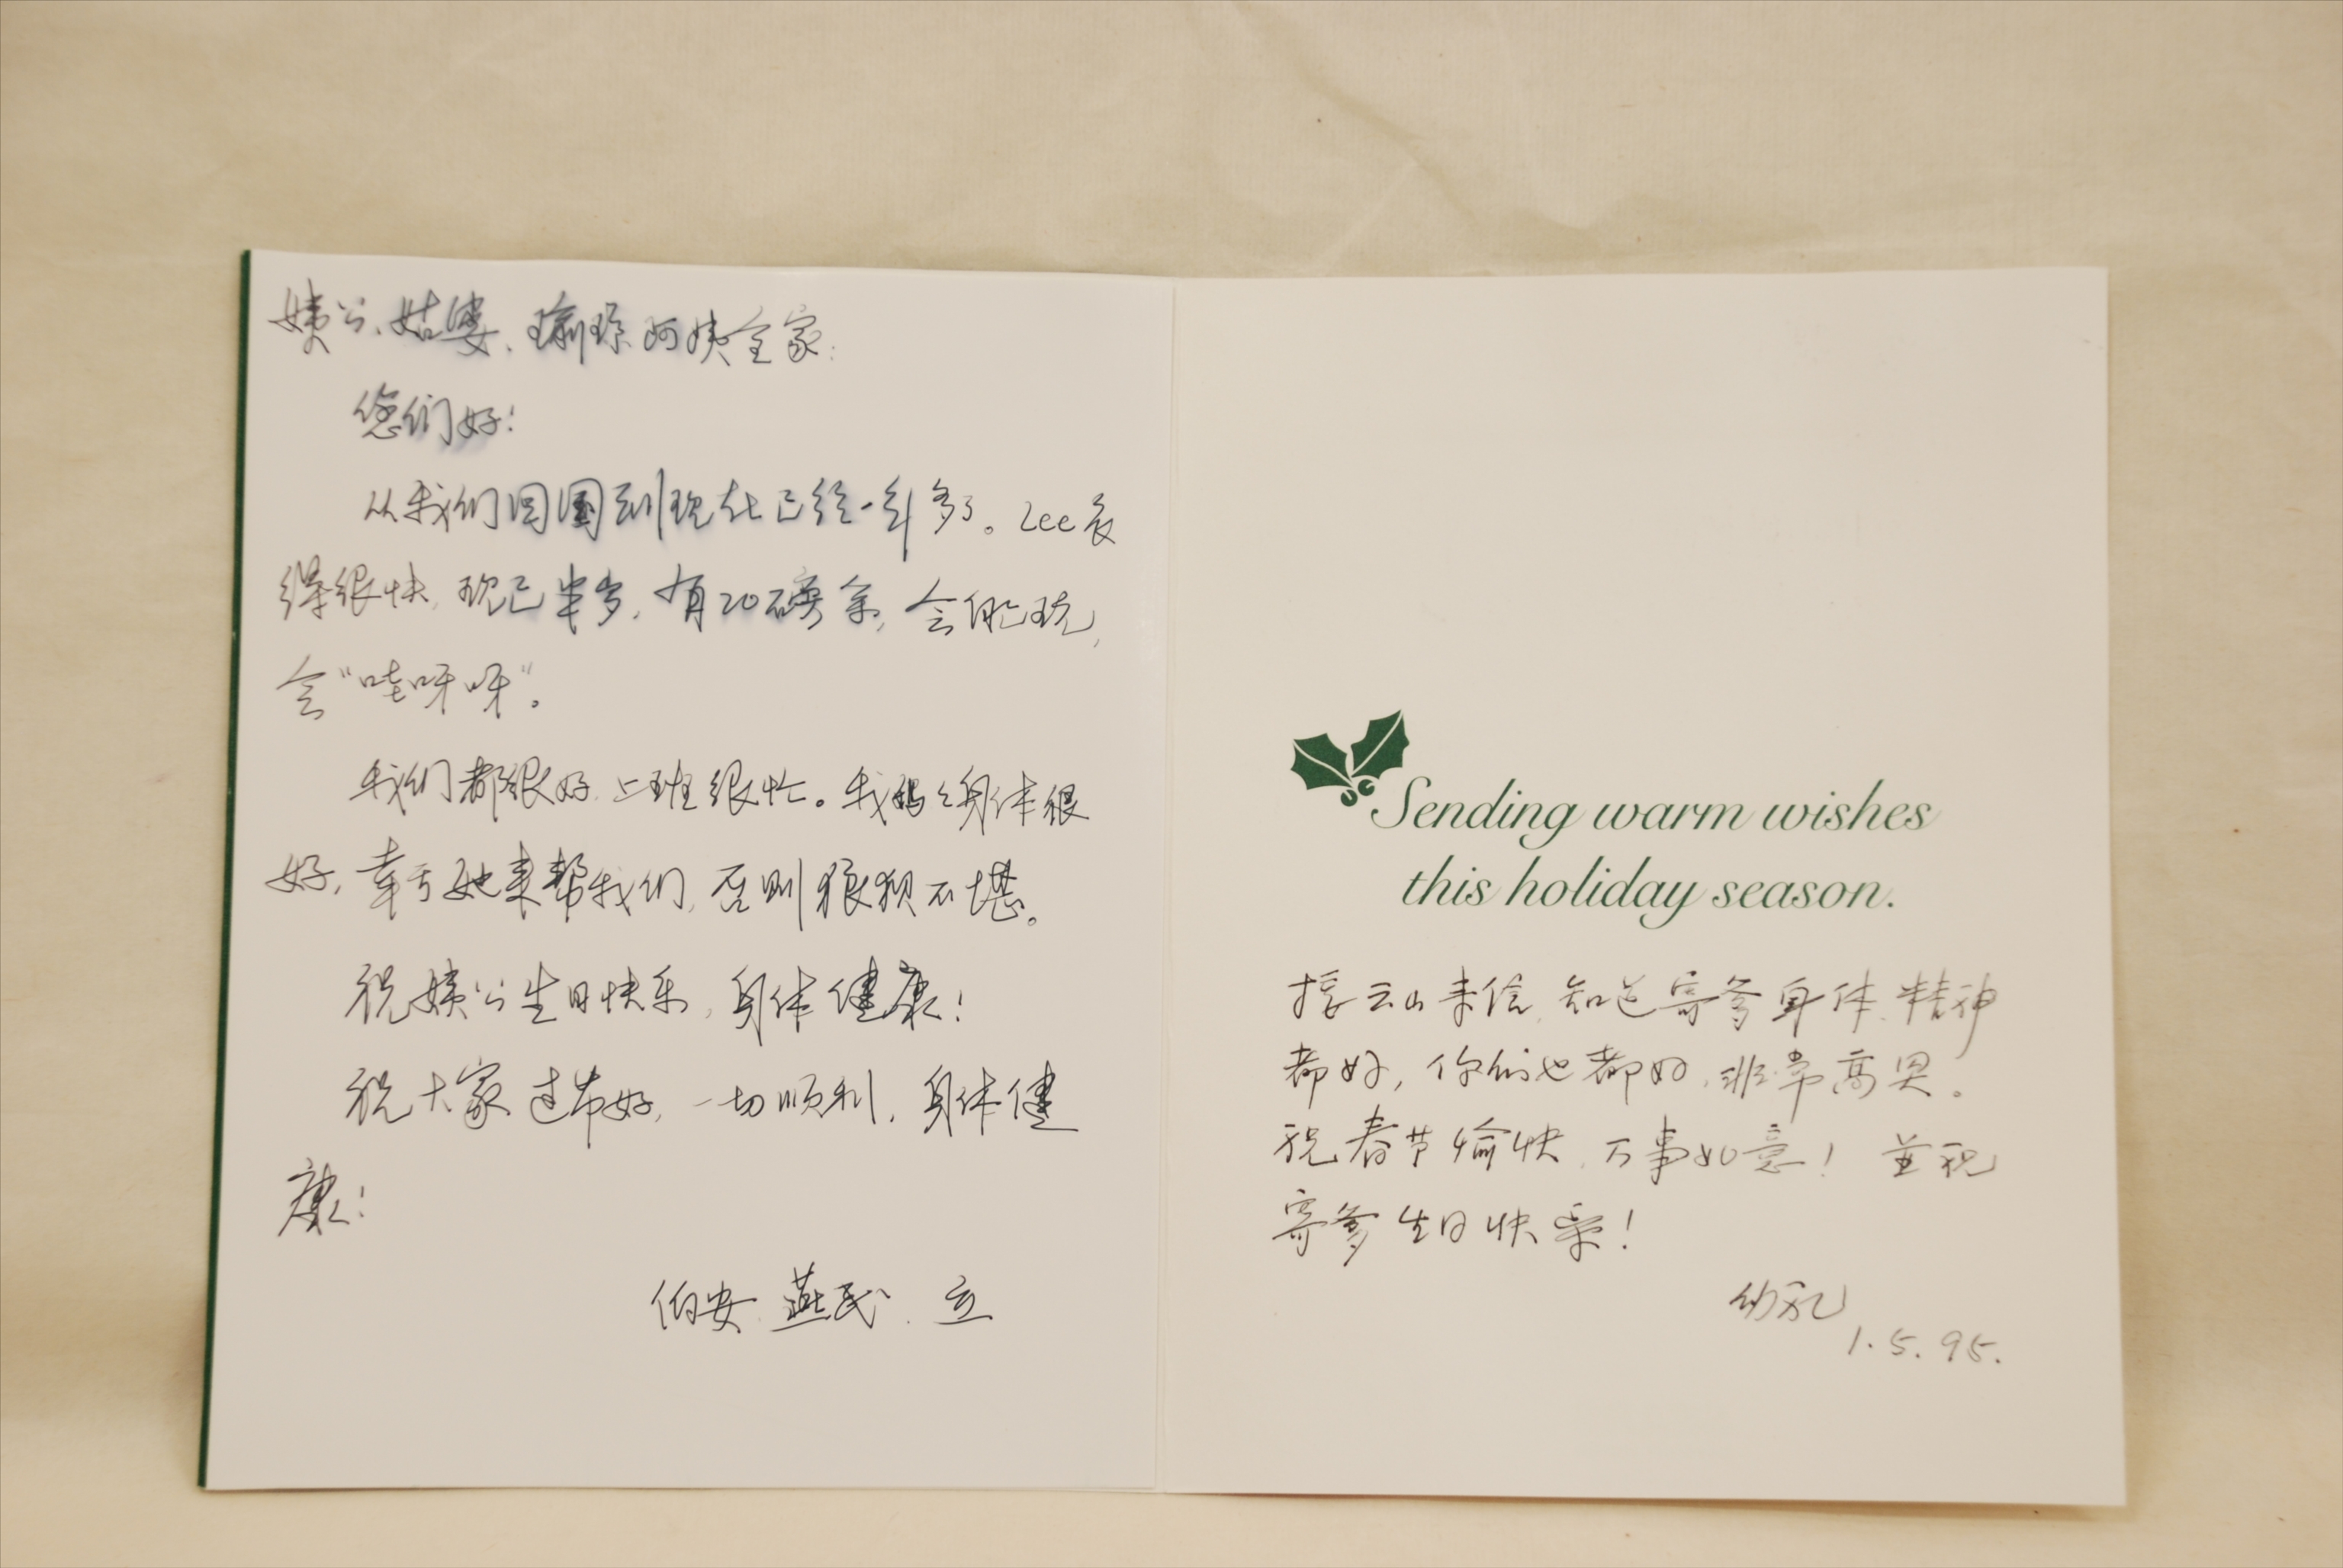 姨公、姑婆、瑜琼阿姨全家:
您们好!
从我们回国到现在已经一年多了。Lee长
得很快,现已半岁,有20磅余,会能玩,
会“哇呀呀”。
我们都很好,上班很忙。我妈妈身体很
好,幸亏她来帮我们,否则狼狈不堪。
祝姨公生日快乐,身体健康!
祝大家过节好,一切顺利,身体健
康!
伯安、燕民、立
Sending warm wishes
this holiday season.
接云山来信,知道寄爹身体、精神
都好,你们也都好,非常高兴。
祝春节愉快,万事如意!並祝
寄爹生日快乐!
1.5.95.